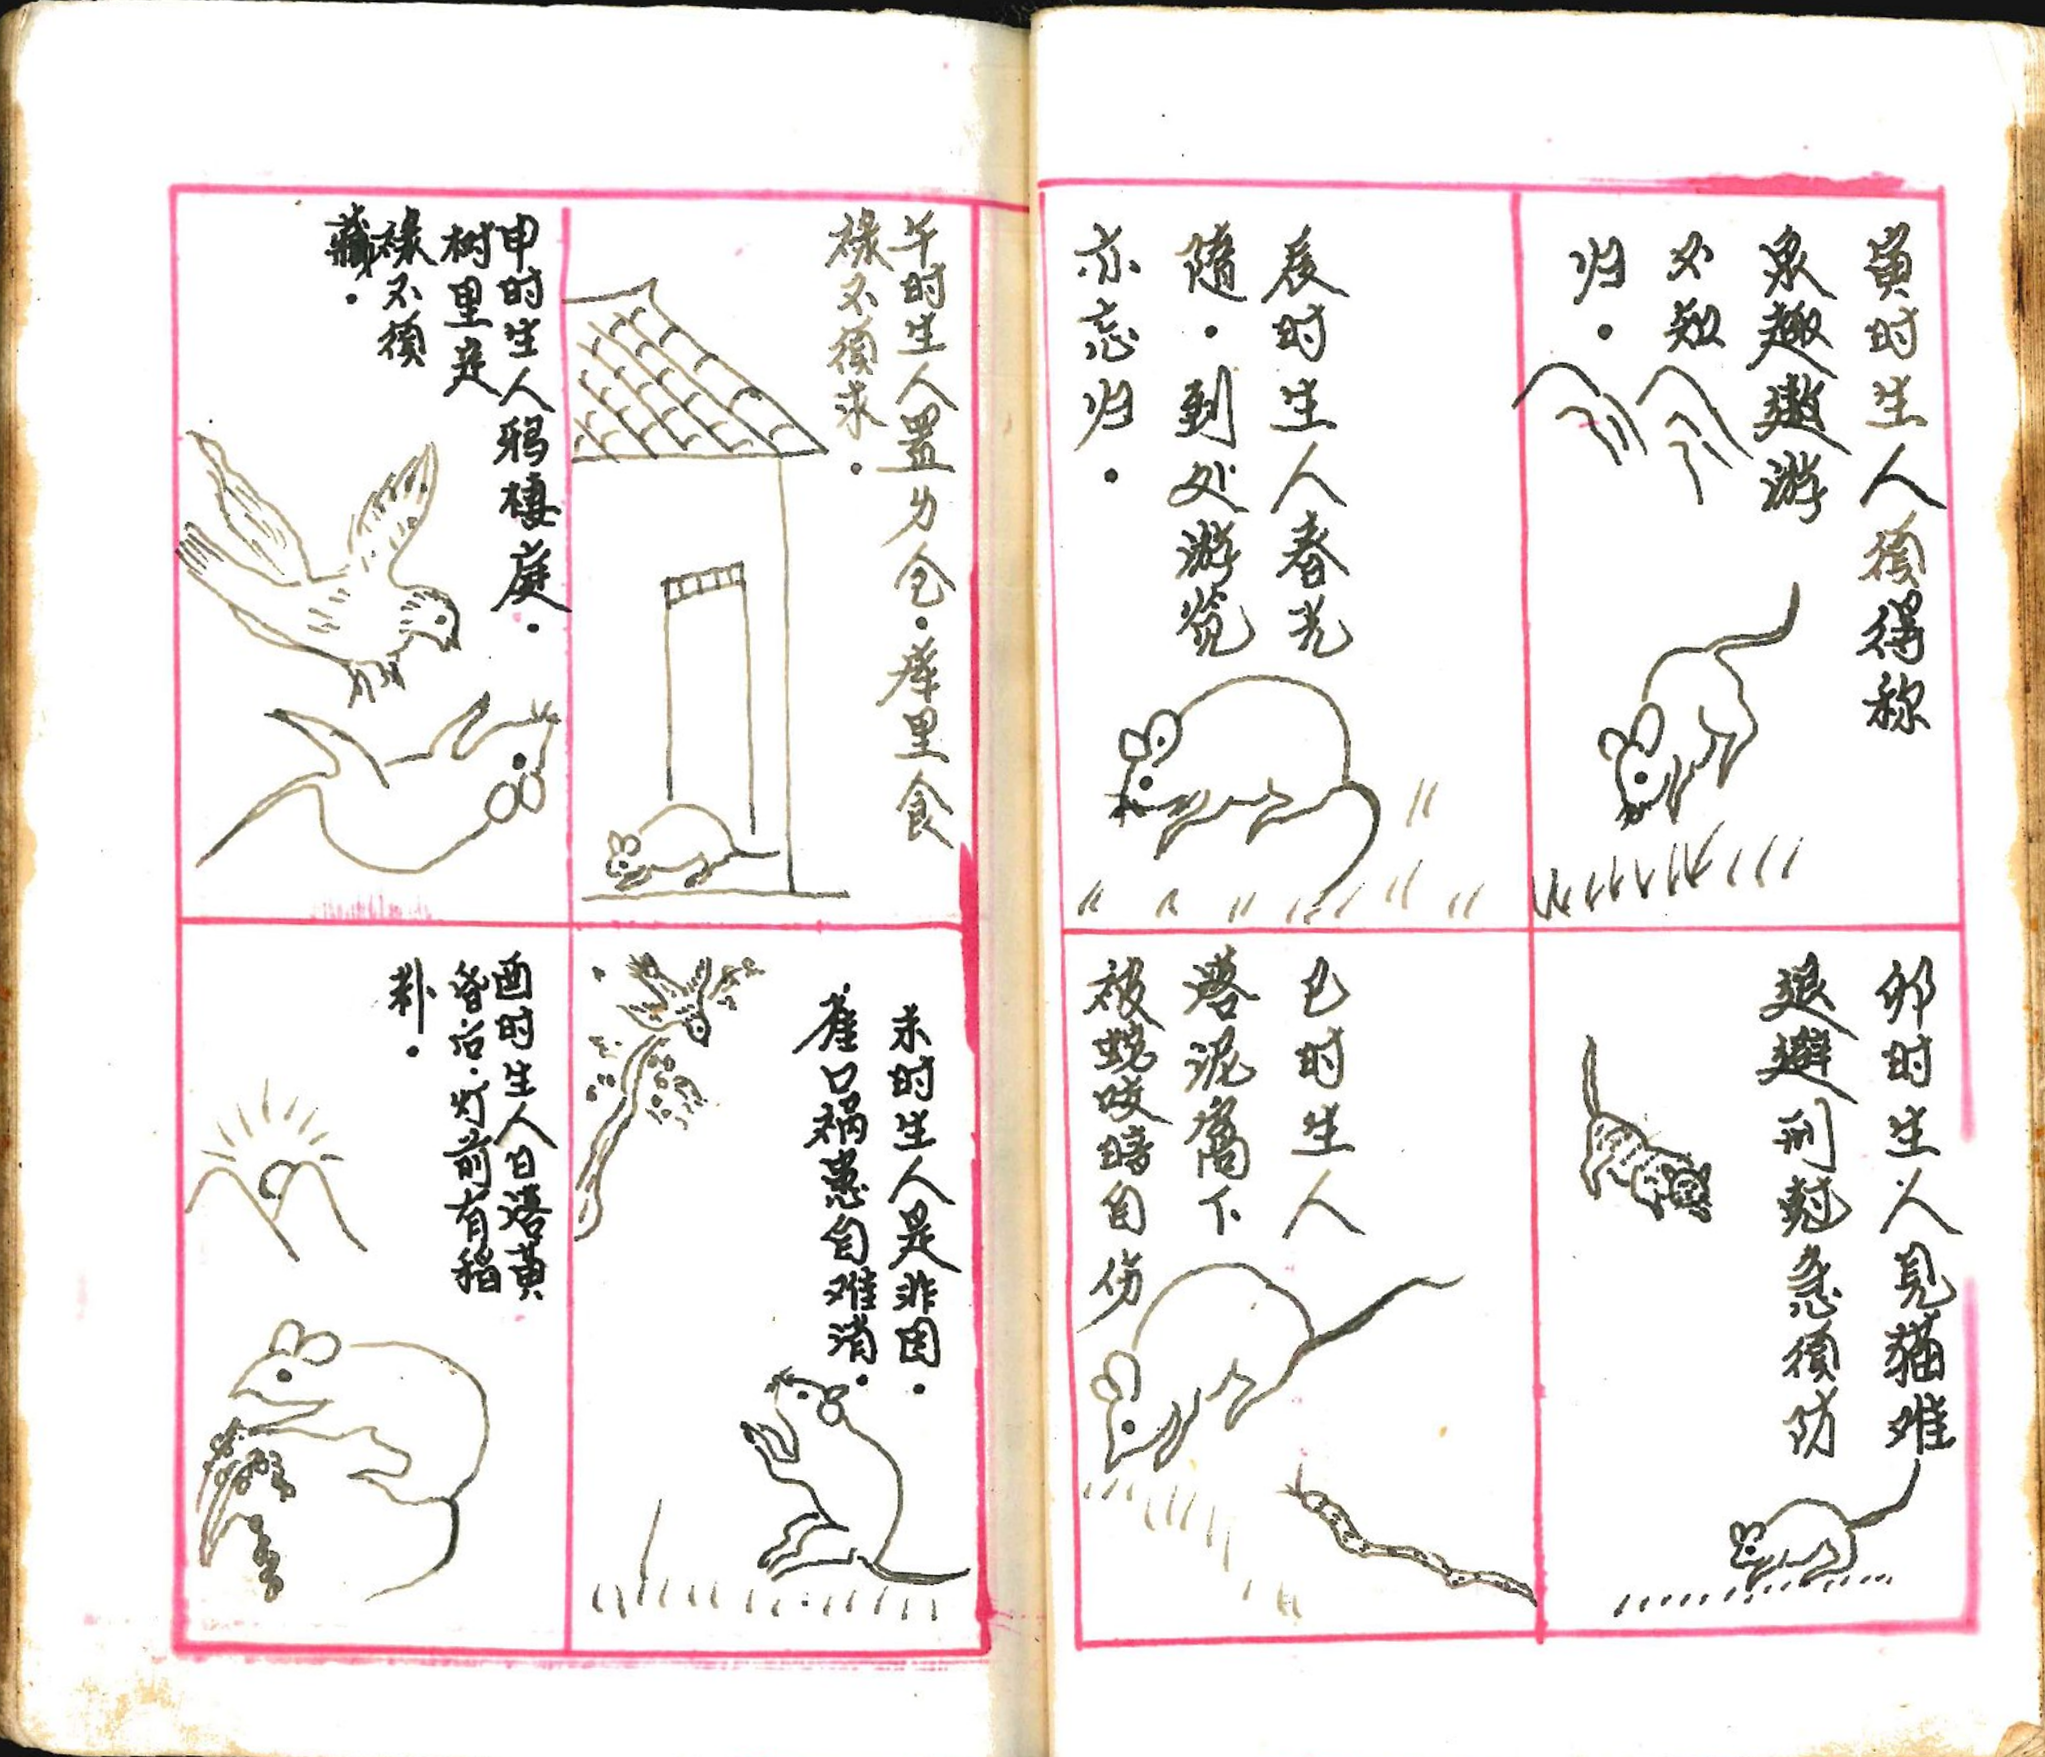 寅时生人须得称
泉趣遨游
不知
归.
卯时生人见猫难
退避刑尅急须防
辰时生人春光
随.到处游览
亦忘归.
巳时生人
落泥窩下
被蛇咬時自伤
午时生人置为仓.庫里食
禄不须求.
未时生人是非因.
雀口祸患自难消.
申时生人鸦棲庭.
树里是
禄不须
藏.
酉时生人日落黄
昏后.戶前有稻